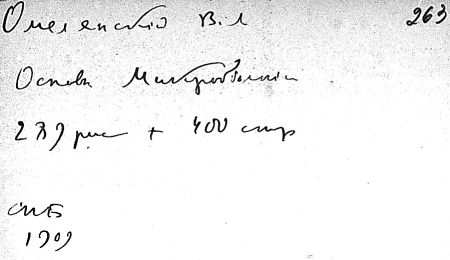 Омелянскій В.Л 263
Основы Микробіологіи
279 рис + 400 стр
СПБ
1909